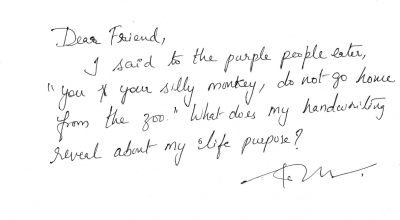 Dear Friend,
I said to the purple people eater,
"you & your silly monkey, do not go home
from the zoo." What does my handwriting
reveal about my life purpose?